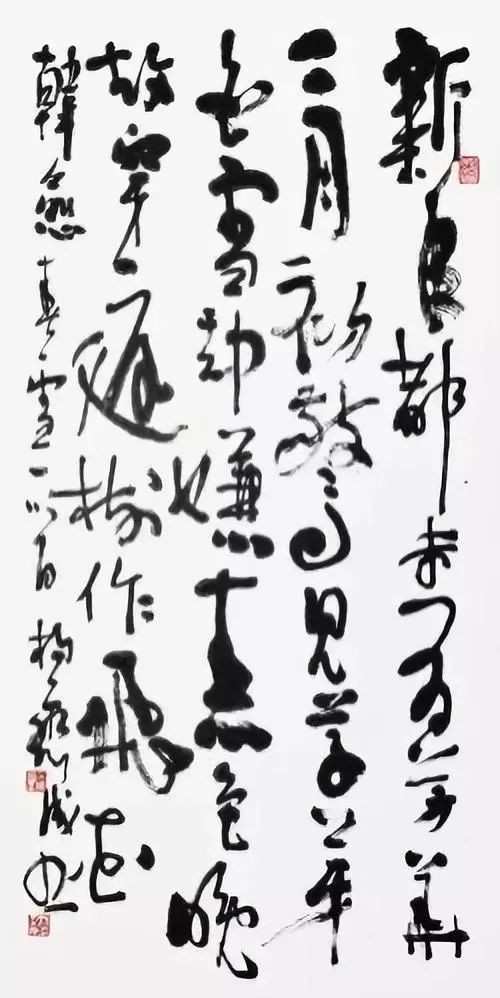 新年都未有芳華
三月初驚見草芽
白雪却嫌春色晚
故穿庭樹作飛花
韓愈春雪一首 楊成書